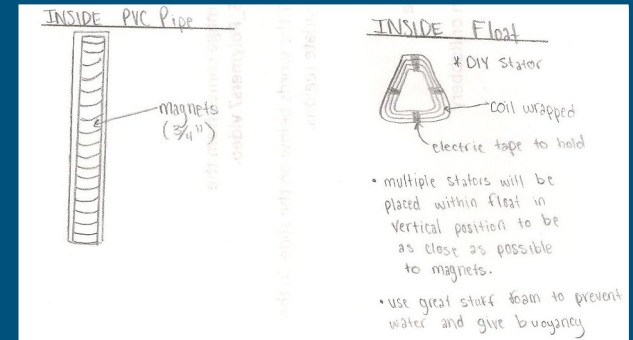 INSIDE PVC Pipe
magnets
(3/4")
INSIDE Float
* DIY Stator
coil wrapped
electric tape to hold
• multiple stators will be
placed within float in
vertical position to be
as close as possible
to magnets.
• use great stuff foam to prevent
water and give buoyancy